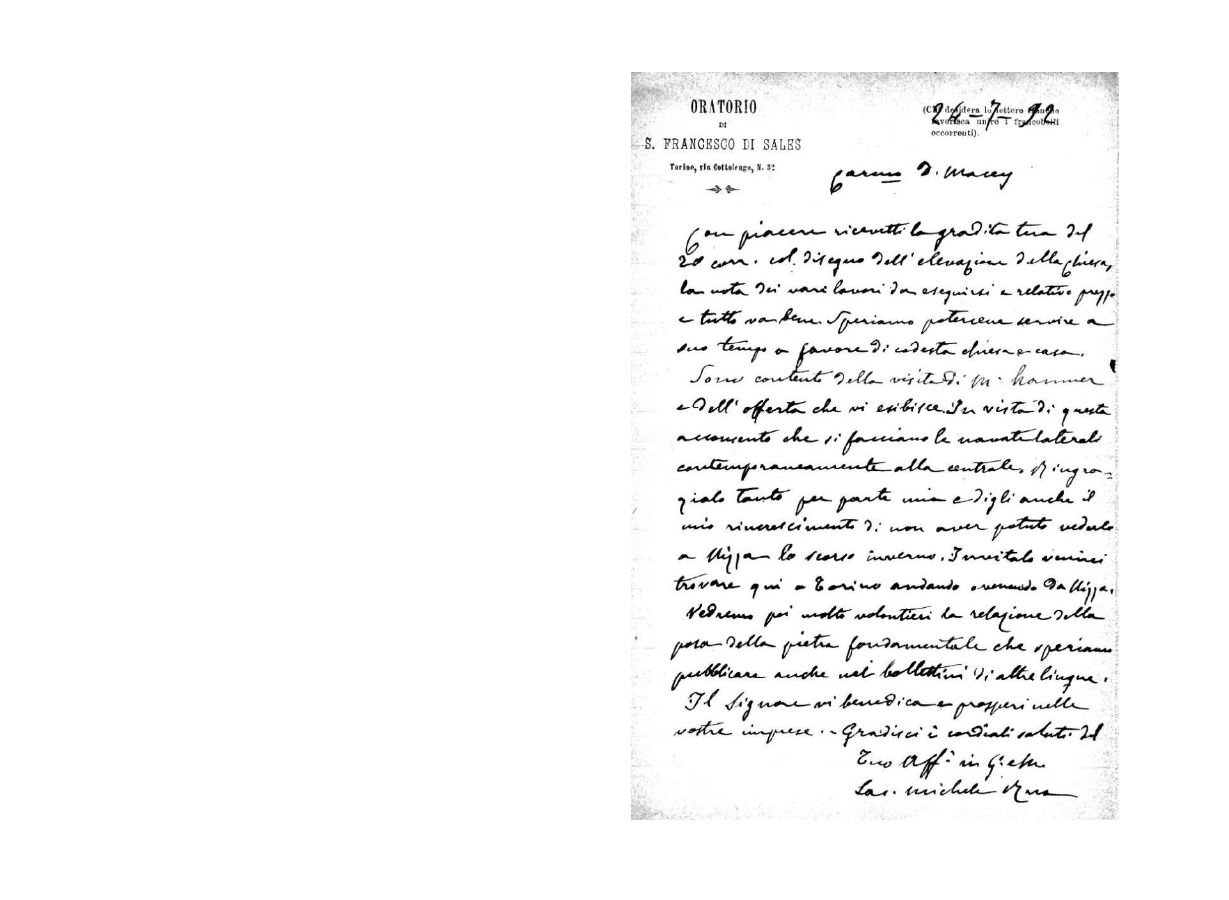 ORATORIO
DI
S. FRANCESCO DI SALES
Torino, via Cottolengo, N. 32
(Chi desidera lo lettere franche
favorisca unire i francobolli
occorrenti).
24-7-92
Carmo D. Macey
Con piacere ricevetti la gradita tua del
20 corr. col disegno dell'elevazione della chiesa,
la nota dei vari lavori da eseguirsi e relativo prezzo
e tutto va bene. Speriamo potercene servire a
suo tempo a favore di codesta chiesa e casa.
Sono contento della visita di Mr
e dell'offerta che vi esibisce. In vista di questa
acconsento che si facciano le navate laterali
contemporaneamente alla centrale. Ringra=
zialo tanto per parte mia e digli anche il
mio rincrescimento di non aver potuto vederlo
a Nizza lo scorso inverno. Invitalo venirci
trovare qui a Torino andando o venendo da Nizza.
Vedremo poi molto volontieri la relazione della
posa della pietra fondamentale che speriamo
pubblicare anche nei bollettini di altre lingue.
Il Signore vi benedica e prosperi nelle
vostre imprese. - Gradisci i cordiali saluti del
Tuo Aff.o in G. e M.
Sac. Michele Rua